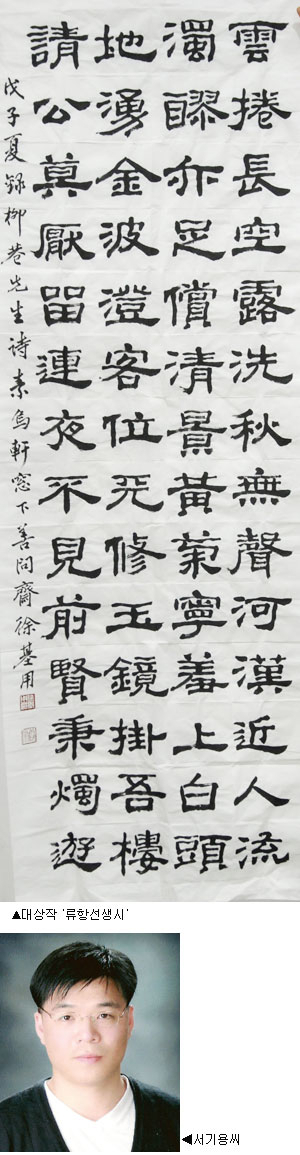 雲捲長空露洗秋無聲河漢近人流
濁醪亦足償清景黃菊寧羞上白頭
地湧金波澄客位天修玉鏡掛吾樓
請公莫厭留連夜不見前賢秉燭遊
戊子夏錄柳巷先生詩素烏軒窓下善問齋徐基用
▲대상작 '류항선생시'
◀서기용씨